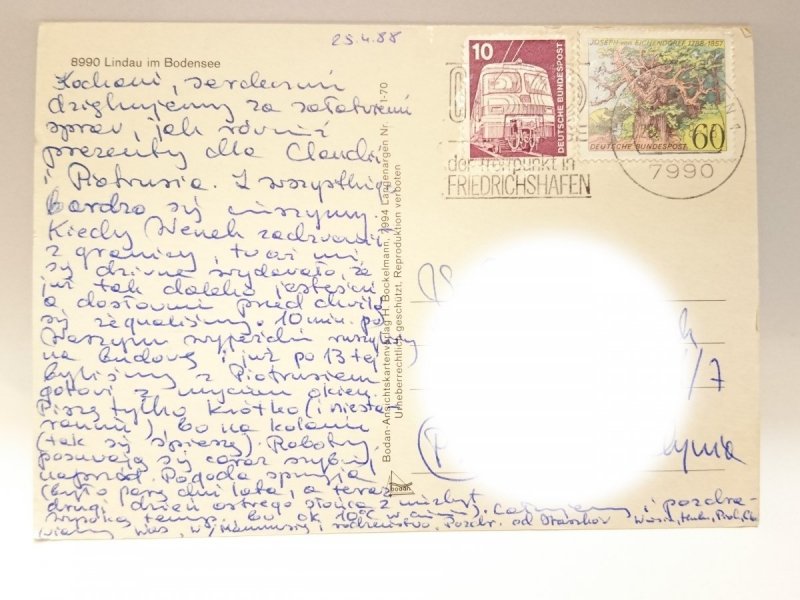 25.4.88
8990 Lindau im Bodensee
Kochani, serdecznie
dziękujemy za załatwienie
spraw, jak również
prezenty dla Claudii
i Piotrusia. Z wszystkiego
bardzo się cieszymy.
Kiedy Wenek zadzwonił
z granicy, to aż mi
się dziwne wydawało, że
już tak daleko jesteście
a dosłownie przed chwilą
się żegnaliśmy. 10 min. po
Waszym wyjeździe
na budowę i już po 13-tej
byliśmy z Piotrusiem
gotowi z myciem okien.
Piszę tylko krótko (i niesta-
rannie), bo na kolanie
(tak się spieszę). Roboty
posuwają się coraz szybciej
naprzód. Pogoda sprzyja
(było parę dni lata, a teraz
drugi dzień ostrego słońca z niezbyt
wysoką temp. bo ok 10°C w cieniu). Całujemy i pozdra-
wiamy Was, Mamusię, rodzeństwo. Pozdr. od
10
DEUTSCHE BUNDESPOST
JOSEPH von EICHENDORFF 1788-1857
60
DEUTSCHE BUNDESPOST
der Treffpunkt in
FRIEDRICHSHAFEN
7990
Bodan-Ansichtskartenverlag H. Bockelmann, 7994 Langenargen Nr.
Urheberrechtlich geschützt. Reproduktion verboten
bodan